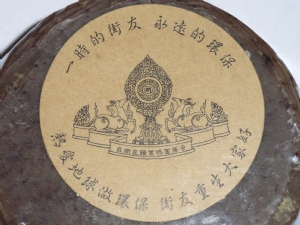 一時的街友 永遠的環保
熱愛地球做環保 街友重生大家好